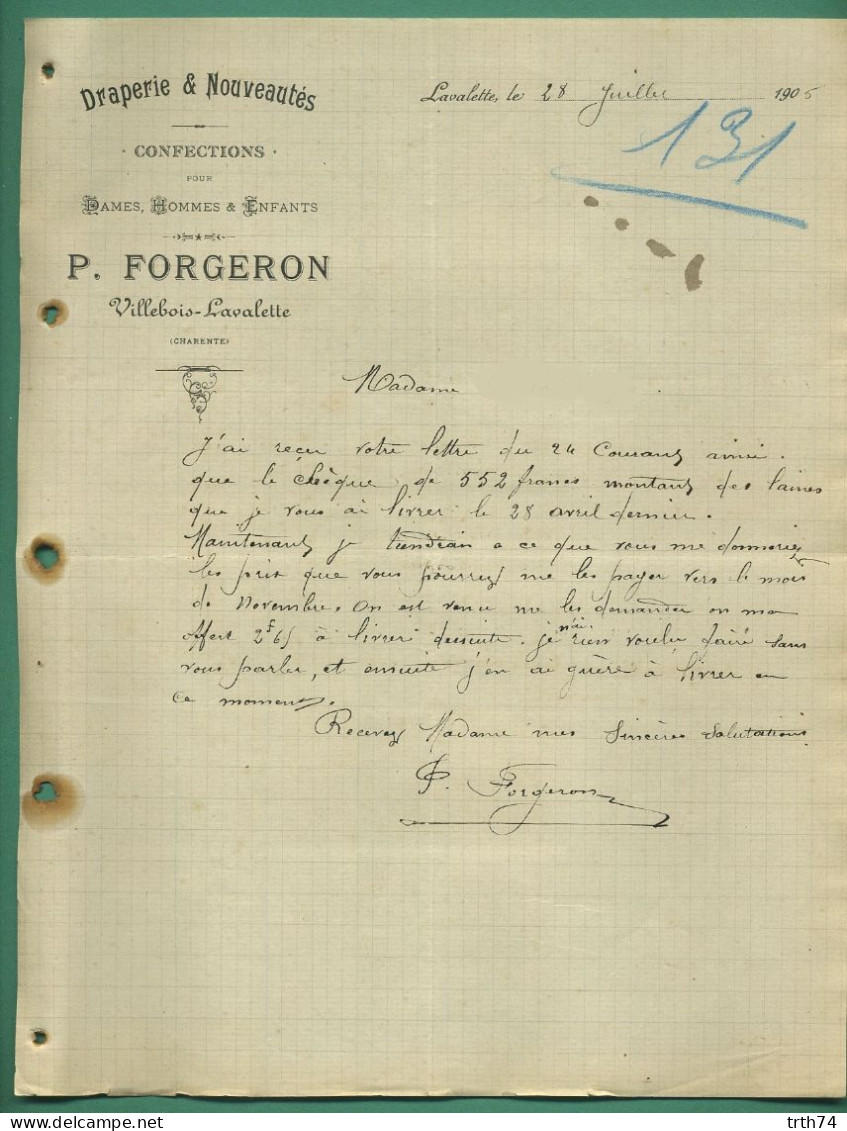 Draperie & Nouveautés
CONFECTIONS
POUR
DAMES, HOMMES & ENFANTS
P. FORGERON
Villebois-Lavalette
(CHARENTE)
Lavalette, le 28 Juillet 1905
131
Madame
J'ai reçu votre lettre du 24 Courant ainsi.
que le chèque de 552 francs montant des laines
que je vous ai livrer le 28 avril dernier.
Maintenant je tiendrais a ce que vous me donneriez
les prix que vous pourrez me les payer vers le mois
de Novembre. On est venu me les demander on m'a
offert 2f65 à livrer dessuite. je n'ai rien voulu faire sans
vous parler, et ensuite j'en ai guère à livrer en
ce moment.
Recevez Madame mes Sincères Salutations
P. Forgeron
trth74